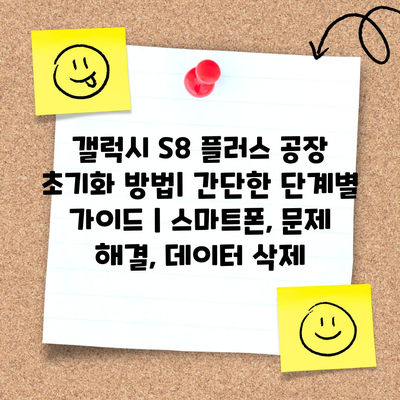 갤럭시 S8 플러스 공장
초기화 방법| 간단한 단계별
가이드 | 스마트폰, 문제
해결, 데이터 삭제